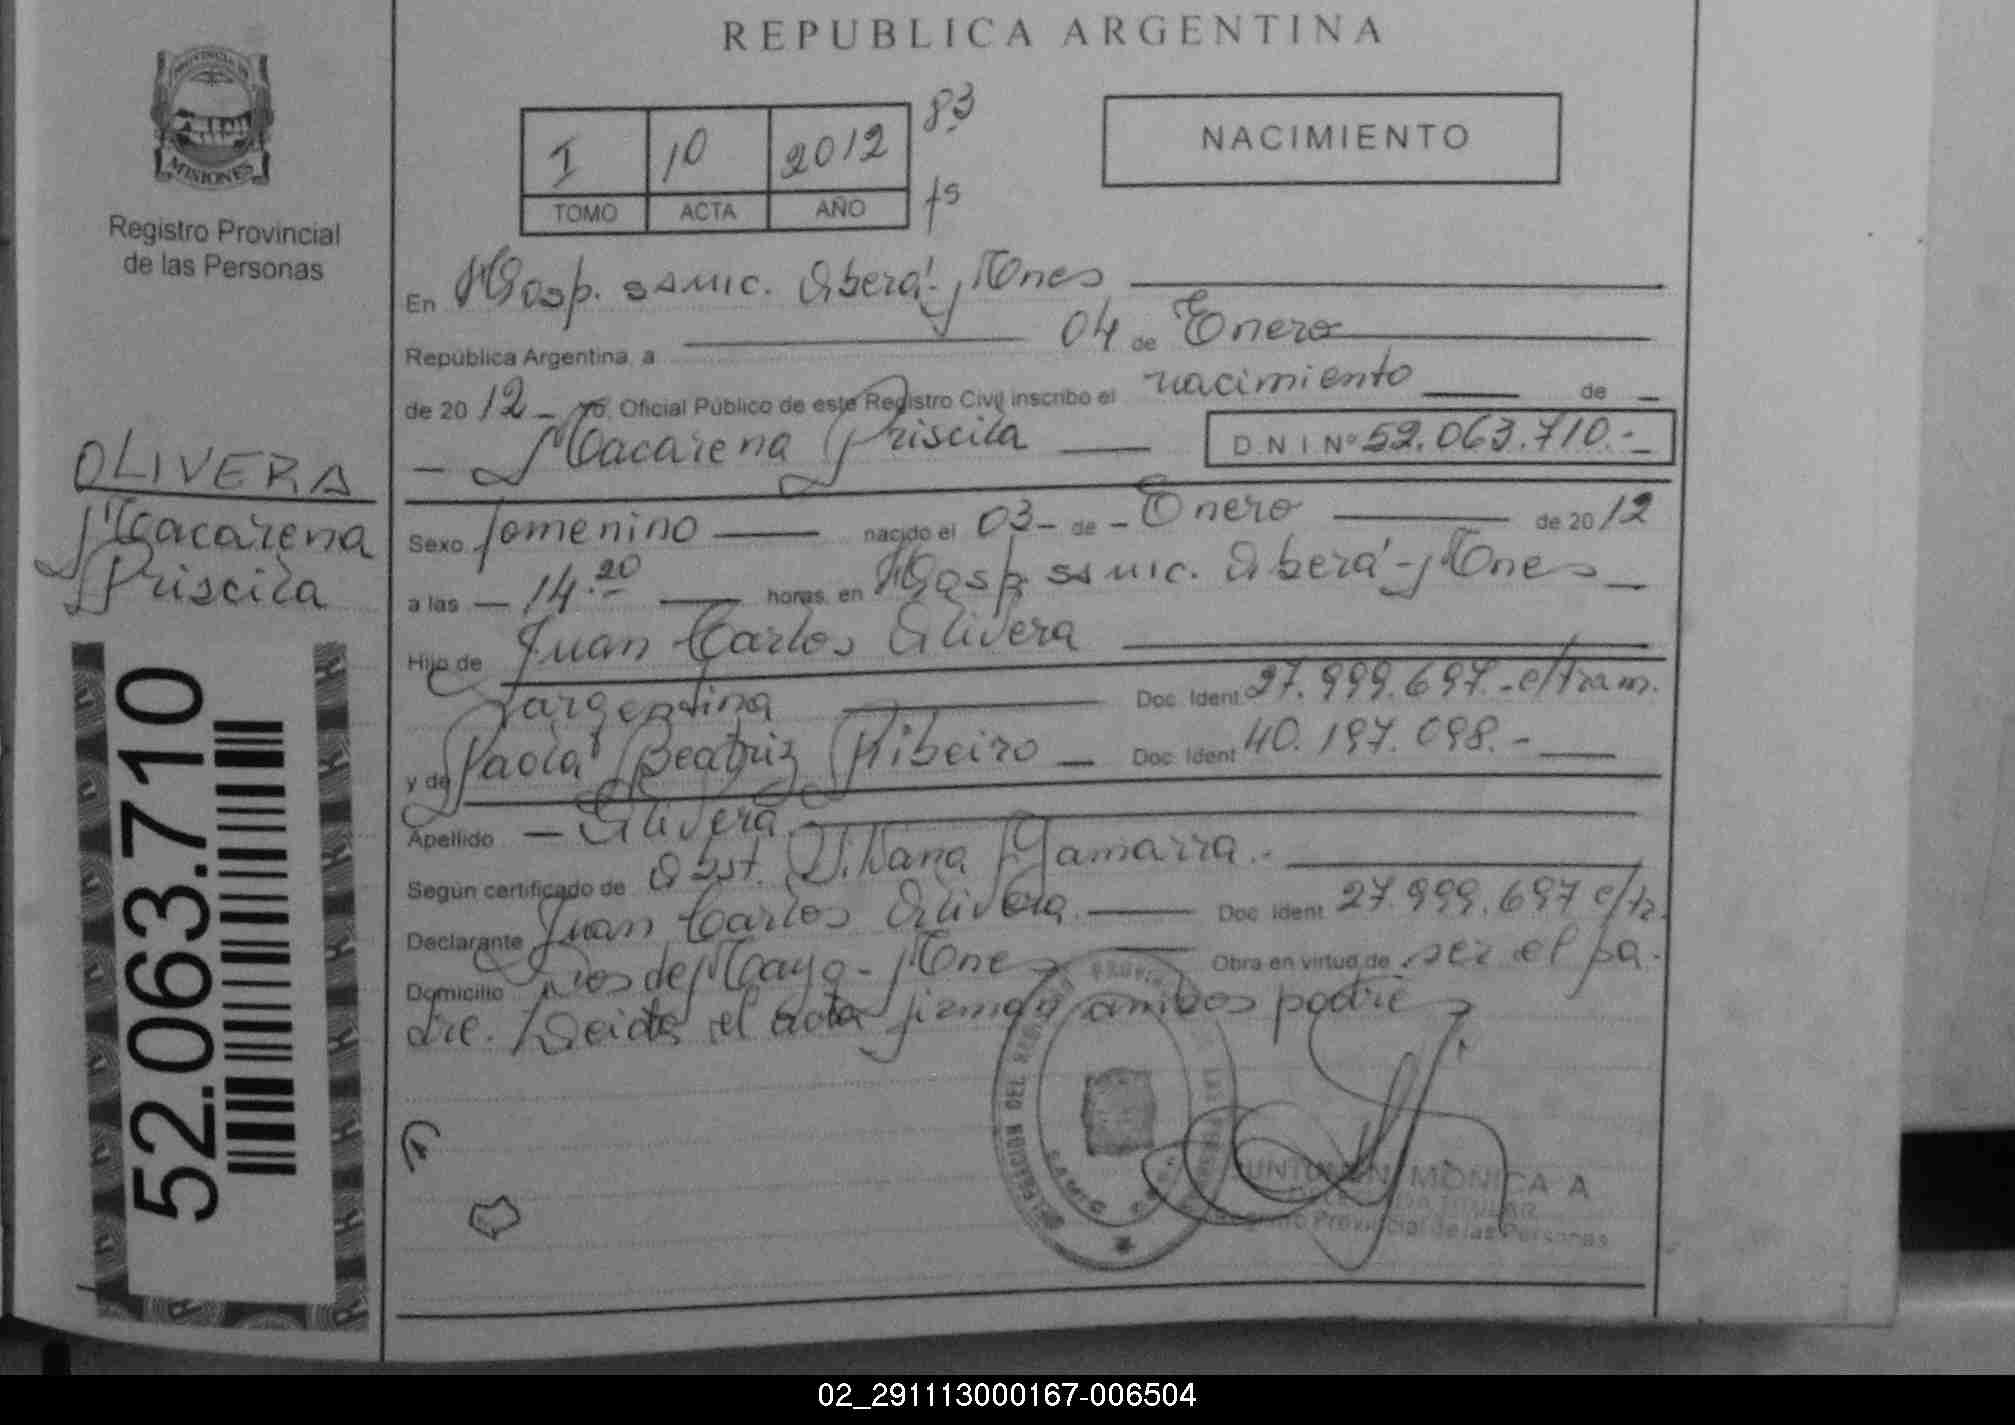 REPUBLICA ARGENTINA
PROVINCIA DE
MISIONES
Registro Provincial
de las Personas
I 10 2012 83
TOMO ACTA AÑO fs
NACIMIENTO
En Hosp. SSMIC. Oberá - Mnes
República Argentina, a 04 de Enero
de 20 12 - yo, Oficial Público de este Registro Civil inscribo el nacimiento de
Macarena Priscila D.N.I Nº 52.063.710.-
OLIVERA
Macarena
Priscila
Sexo femenino nacido el 03 - de - Enero de 20 12
a las 14.20 horas, en Hosp. SSMIC. Oberá - Mnes
Hijo de Juan Carlos Olivera
argentina Doc. Ident. 27.999.697.- e/tram.
y de Paola Beatriz Ribeiro Doc. Ident. 40.197.098.-
Apellido Olivera
Según certificado de Obst. Viviana Gamarra.-
Declarante Juan Carlos Olivera Doc. Ident. 27.999.697 e/tr.
Domicilio Dos de Mayo - Mnes Obra en virtud de ser el pa-
dre. Leida el acta firman ambos padres
52.063.710
DELEGACION DEL REGISTRO PROVINCIAL DE LAS PERSONAS
MONICA A
Registro Provincial de las Personas
02_291113000167-006504